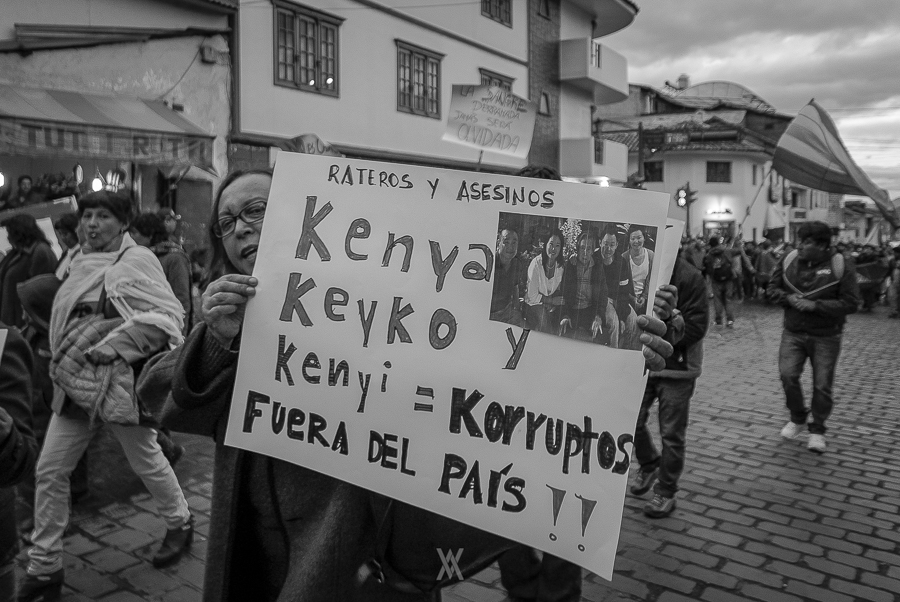 LA
SANGRE
DERRAMADA
JAMÁS SERÁ
OLVIDADA
RATEROS Y ASESINOS
Kenya
Keyko y
Kenyi = Korruptos
FUERA DEL PAÍS !!